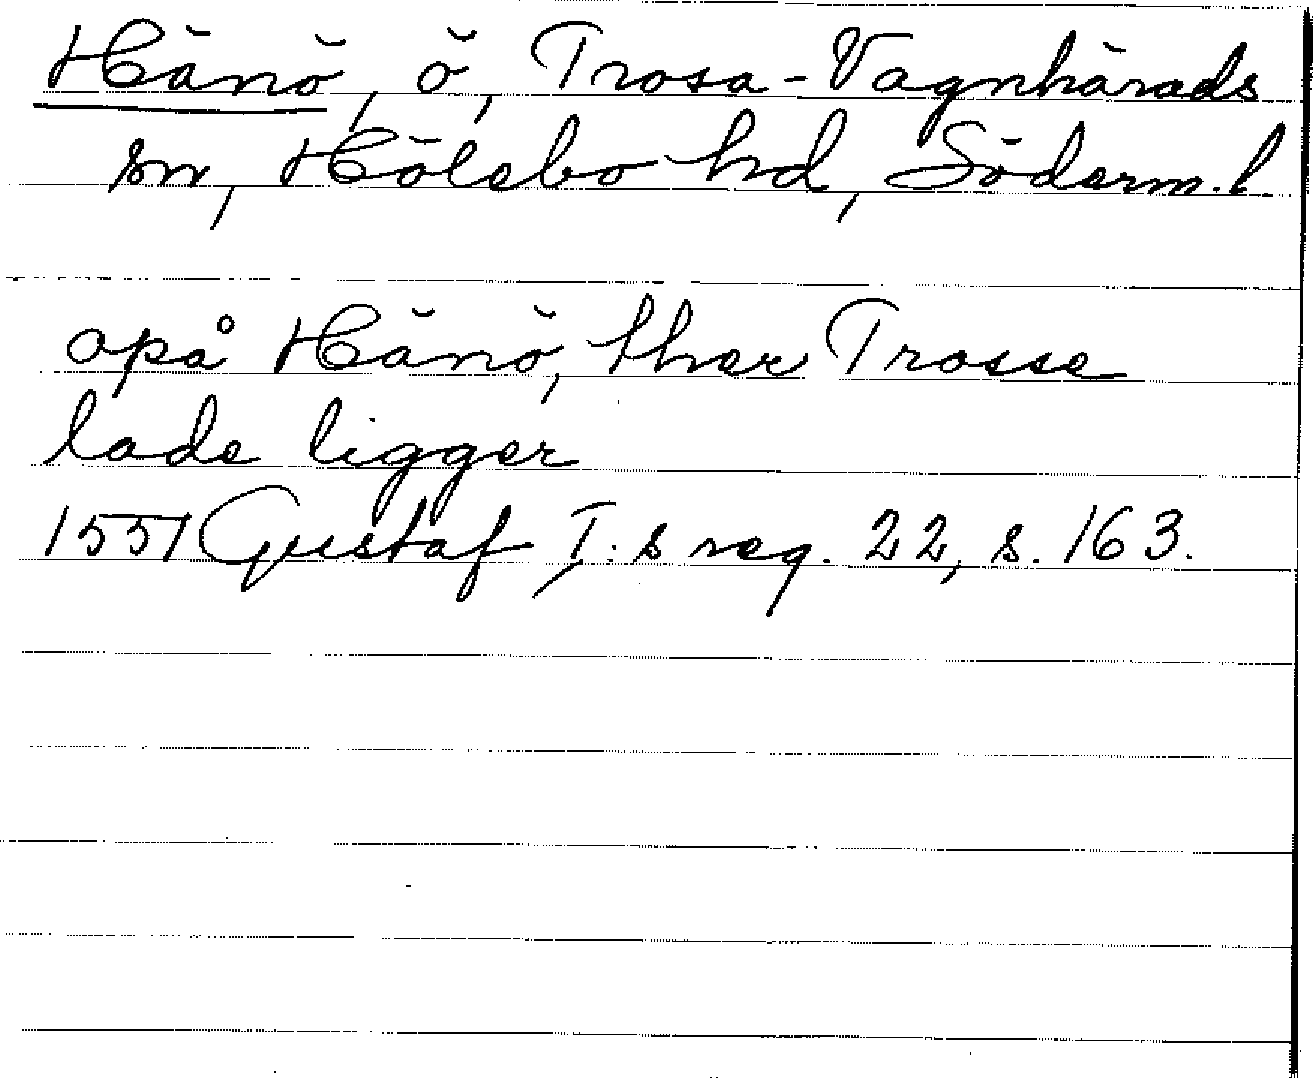 Hänö, ö, Trosa-Vagnhärads
sn, Hölebo hd, Söderm. l
opå Hänö, ther Trosse
lade ligger
1551 Gustaf I:s reg. 22, s. 163.